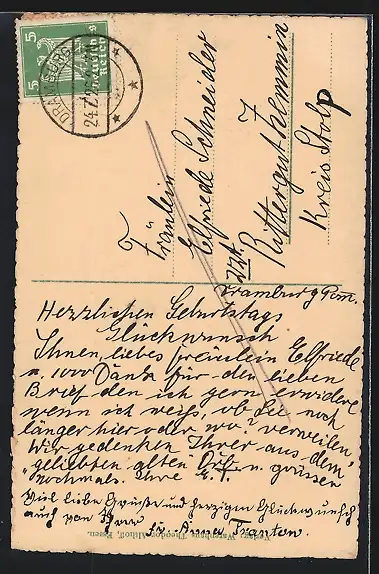 5 Deutsches Reich 5
DRAMBURG
24.7.26
Fräulein
Elfriede Schneider
Rittergut Zemmin
Kreis Stolp
Dramburg Pom.
Herzlichen Geburtstags
Glückwunsch
Ihnen, liebes Fräulein Elfriede
u. 1000 Dank für den lieben
Brief den ich gern erwidere
wenn ich weiß, ob Sie noch
länger hier oder wo? verweilen
Wir gedenken Ihrer aus dem
"geliebten alten u. grüssen
nochmals. Ihre
Viel liebe Grüße und herzigen Glückwunsch
auch von Ihrer
Verlag: Warenhaus Theodor Althoff, Essen.